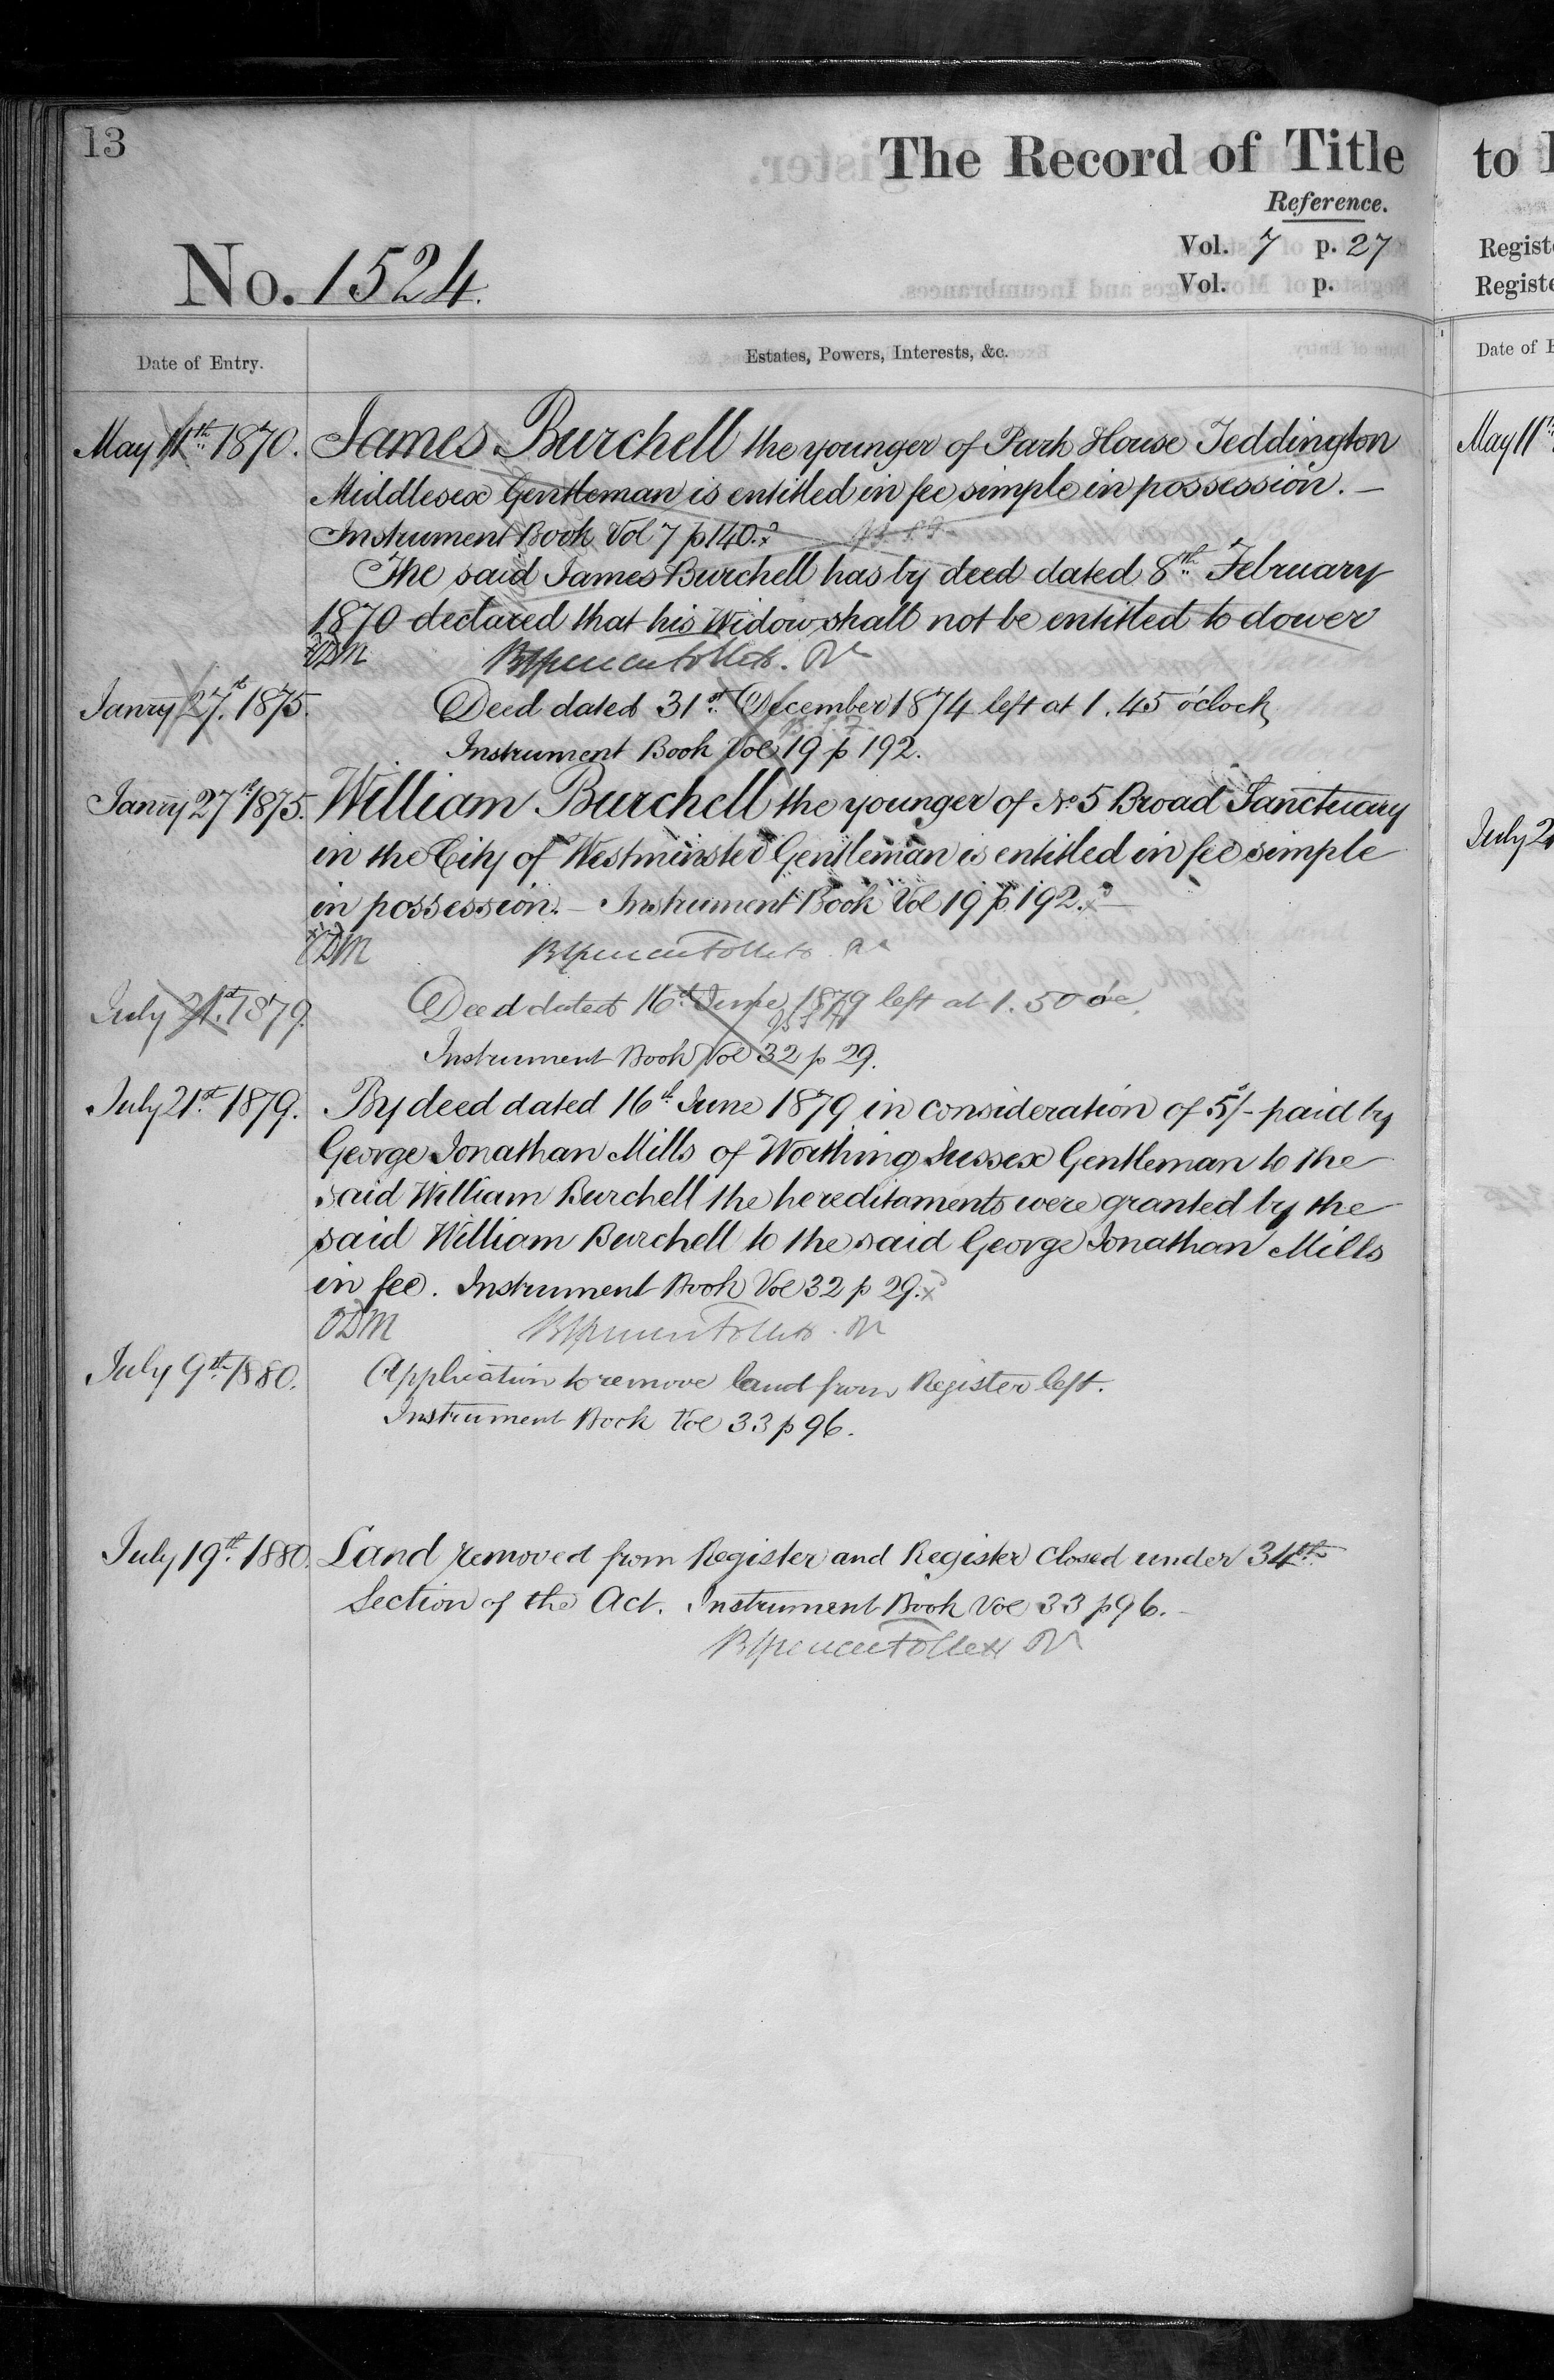 13
The Record of Title
to
Reference.
Vol. 7 p. 27
Vol. p.
No. 1524.
Date of Entry.
Estates, Powers, Interests, &c.
Date of
May 11th 1870. James Burchell the younger of Park House Teddington
May 11th
Middlesex Gentleman is entitled in fee simple in possession. —
Instrument Book Vol 7 p 140.
The said James Burchell has by deed dated 8th February
1870 declared that his Widow shall not be entitled to dower
Janry 27th 1875. Deed dated 31st December 1874 left at 1.45 o'clock
Instrument Book Vol 19 p 192.
Janry 27th 1875. William Burchell the younger of No 5 Broad Sanctuary
in the City of Westminster Gentleman is entitled in fee simple
in possession. — Instrument Book Vol 19 p 192.
July 21st 1879. Deed dated 16th June 1879 left at 1.50 o'c
Instrument Book Vol 32 p 29.
July 21st 1879. By deed dated 16th June 1879 in consideration of 5/- paid by
George Jonathan Mills of Worthing Sussex Gentleman to the
said William Burchell the hereditaments were granted by the
said William Burchell to the said George Jonathan Mills
in fee. Instrument Book Vol 32 p 29.
July 9th 1880. Application to remove land from Register left.
Instrument Book Vol 33 p 96.
July 19th 1880. Land removed from Register and Register closed under 34th
Section of the Act. Instrument Book Vol 33 p 96. -